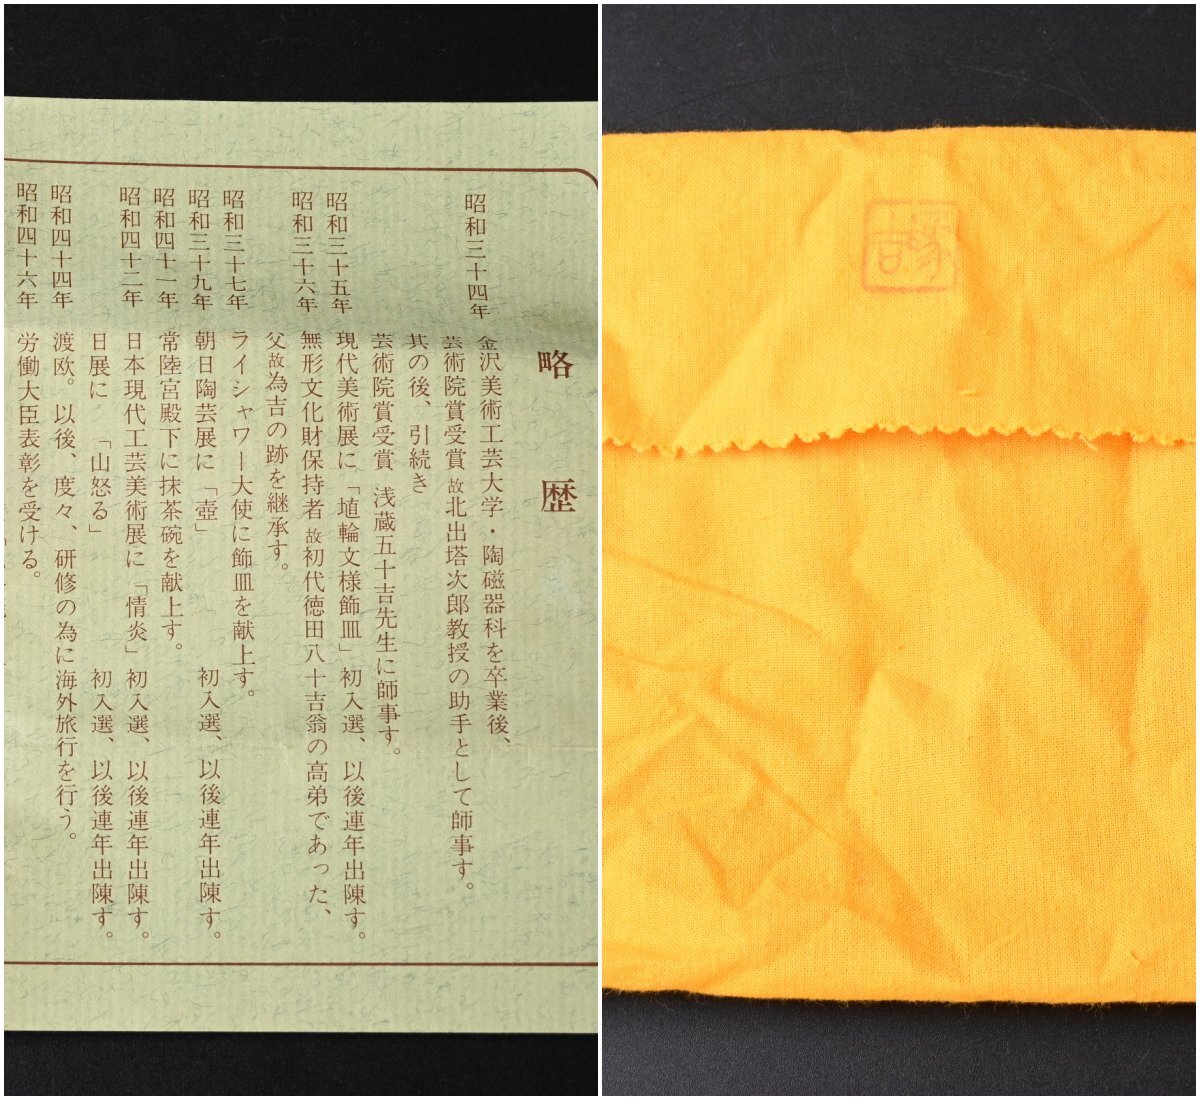 略歴
昭和三十四年 金沢美術工芸大学・陶磁器科を卒業後、
芸術院賞受賞 故北出塔次郎教授の助手として師事す。
其の後、引続き
芸術院賞受賞 浅蔵五十吉先生に師事す。
昭和三十五年 現代美術展に「埴輪文様飾皿」初入選、以後連年出陳す。
昭和三十六年 無形文化財保持者 故初代徳田八十吉翁の高弟であった、
父故為吉の跡を継承す。
昭和三十七年 ライシャワー大使に飾皿を献上す。
昭和三十九年 朝日陶芸展に「壺」 初入選、以後連年出陳す。
昭和四十一年 常陸宮殿下に抹茶碗を献上す。
昭和四十二年 日本現代工芸美術展に「情炎」初入選、以後連年出陳す。
日展に 「山怒る」 初入選、以後連年出陳す。
昭和四十四年 渡欧。以後、度々、研修の為に海外旅行を行う。
昭和四十六年 労働大臣表彰を受ける。